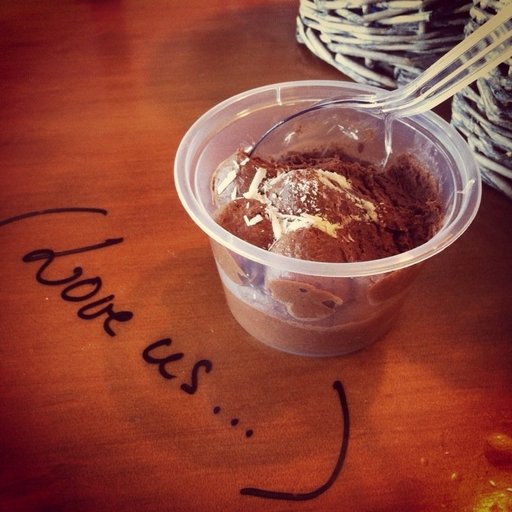 (Love us...)